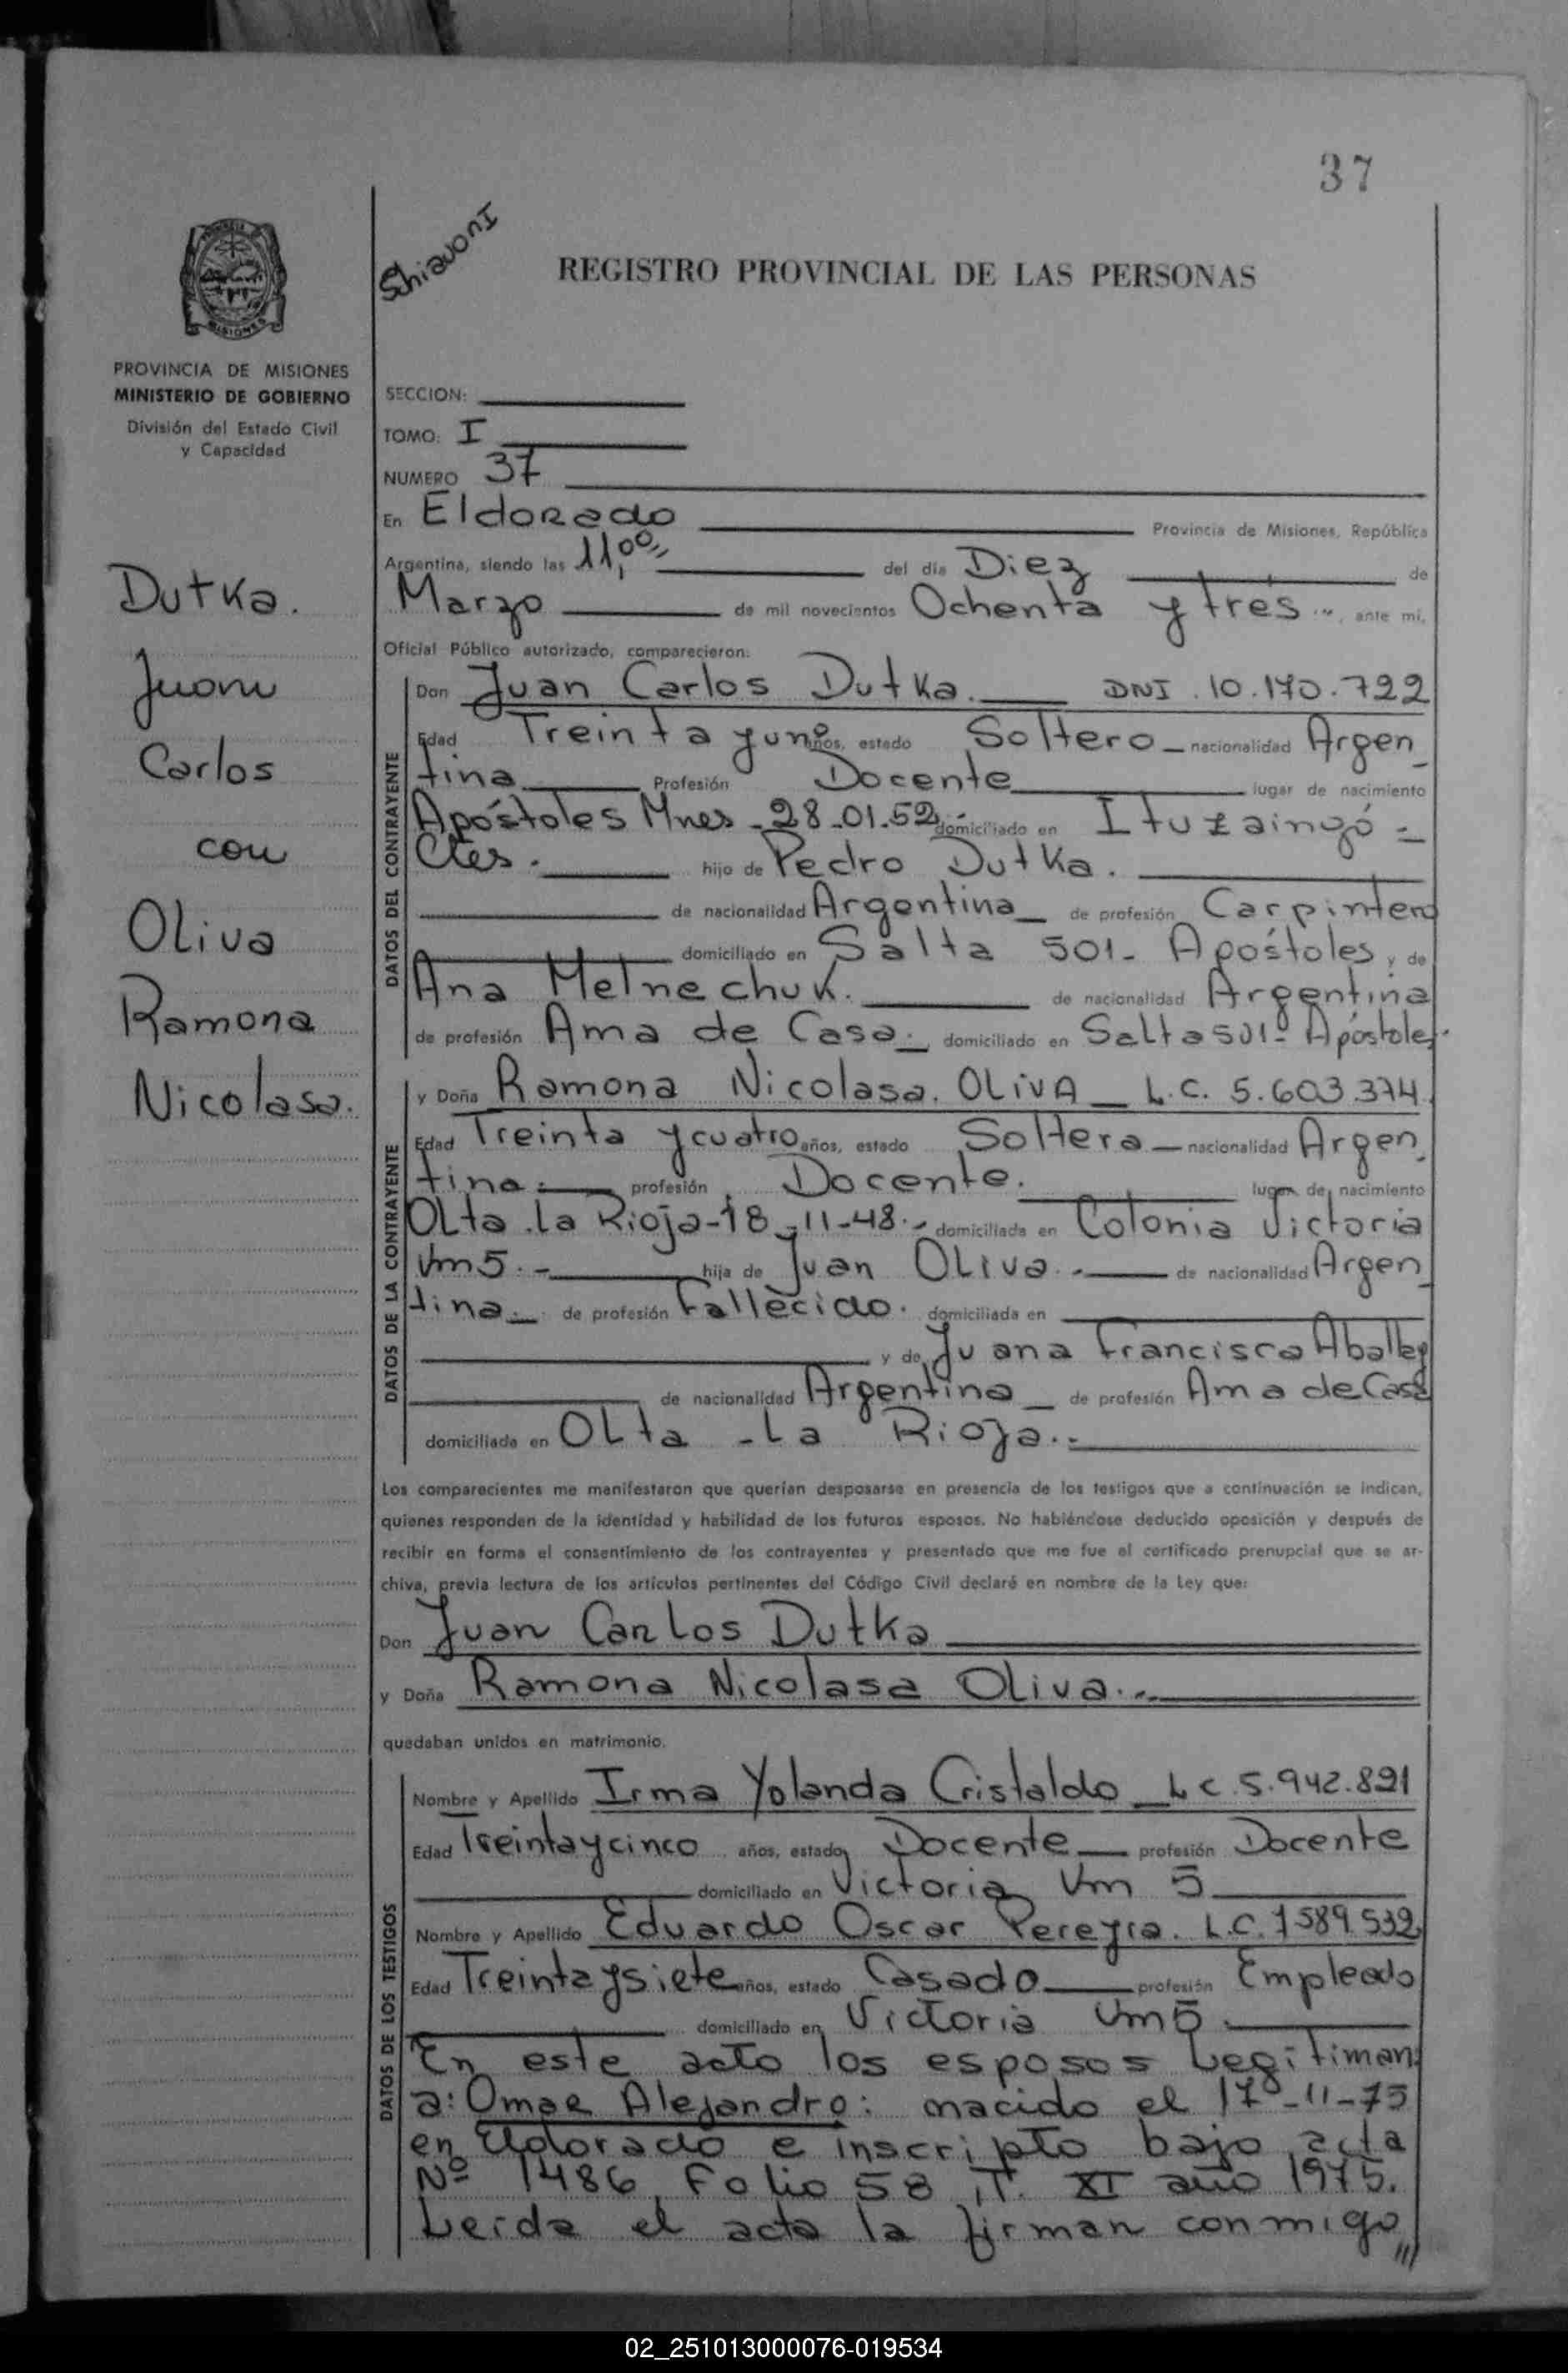 37
Schiavoni
REGISTRO PROVINCIAL DE LAS PERSONAS
PROVINCIA DE MISIONES
MINISTERIO DE GOBIERNO
División del Estado Civil
y Capacidad
SECCION:
TOMO: I
NUMERO 37
En Eldorado Provincia de Misiones, República
Argentina, siendo las 11,00 del día Diez de
Marzo de mil novecientos Ochenta y tres, ante mi,
Oficial Público autorizado, comparecieron:
Dutka.
Juan
Carlos
con
Oliva
Ramona
Nicolasa.
DATOS DEL CONTRAYENTE
Don Juan Carlos Dutka. DNI. 10.170.722
Edad Treinta y uno años, estado Soltero - nacionalidad Argen
tina Profesión Docente lugar de nacimiento
Apóstoles Mnes - 28-01-52 domiciliado en Ituzaingó -
Ctes. hijo de Pedro Dutka.
de nacionalidad Argentina de profesión Carpintero
domiciliado en Salta 501 - Apóstoles y de
Ana Melnechuk. de nacionalidad Argentina
de profesión Ama de Casa. domiciliado en Salta 501 - Apóstoles.
DATOS DE LA CONTRAYENTE
y Doña Ramona Nicolasa. OLIVA - L.C. 5.603.374
Edad Treinta y cuatro años, estado Soltera - nacionalidad Argen
tina. profesión Docente. lugar de nacimiento
Olta. La Rioja - 18-11-48. domiciliada en Colonia Victoria
Km 5. hija de Juan Oliva. de nacionalidad Argen
tina. de profesión Fallecido. domiciliada en
y de Juana Francisca
de nacionalidad Argentina de profesión Ama de Casa
domiciliada en Olta - La Rioja.
Los comparecientes me manifestaron que querían desposarse en presencia de los testigos que a continuación se indican,
quienes responden de la identidad y habilidad de los futuros esposos. No habiéndose deducido oposición y después de
recibir en forma el consentimiento de los contrayentes y presentado que me fue el certificado prenupcial que se ar-
chiva, previa lectura de los artículos pertinentes del Código Civil declaré en nombre de la Ley que:
Don Juan Carlos Dutka
y Doña Ramona Nicolasa Oliva.
quedaban unidos en matrimonio.
DATOS DE LOS TESTIGOS
Nombre y Apellido Irma Yolanda Cristaldo - L C. 5.942.821
Edad Treinta y cinco años, estado Docente - profesión Docente
domiciliado en Victoria Km 5
Nombre y Apellido Eduardo Oscar Pereyra. L.C. 7589.532
Edad Treinta y siete años, estado Casado profesión Empleado
domiciliado en Victoria Km 5
En este acto los esposos Legitiman
a: Omar Alejandro: nacido el 17-11-75
en Eldorado e inscripto bajo acta
Nº 1486 Folio 58, T. XI año 1975.
Leida el acta la firman conmigo
02_251013000076-019534